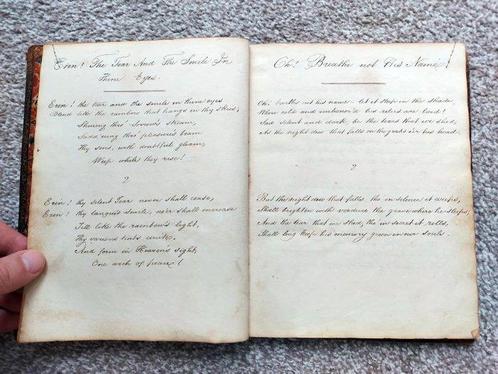 Erin! The Tear And The Smile In
Thine Eyes.
Erin! the tear and the smile in thine eyes
Blend like the rainbow that hangs in thy skies,
Shining thro' Sorrow's stream,
Sadd'ning thro' pleasure's beam
Thy suns, with doubtful gleam,
Weep while they rise!
2
Erin! thy silent Tear never shall cease,
Erin! thy languid smile, ne'er shall increase
Till like the rainbow's light,
Thy various tints unite,
And form in Heaven's sight,
One arch of peace!
Oh! Breathe not His Name
Oh! breathe not his name: let it sleep in the shade,
Where cold and unhonour'd his relics are laid!
Sad silent and dark be the tears that we shed,
As the night dew that falls on the grass o'er his head.
2
But the night dew that falls, tho in silence it weeps,
Shall brighten with verdure the grave where he sleeps,
And the tear that we shed, tho in secret it rolls,
Shall long keep his memory green in our souls.